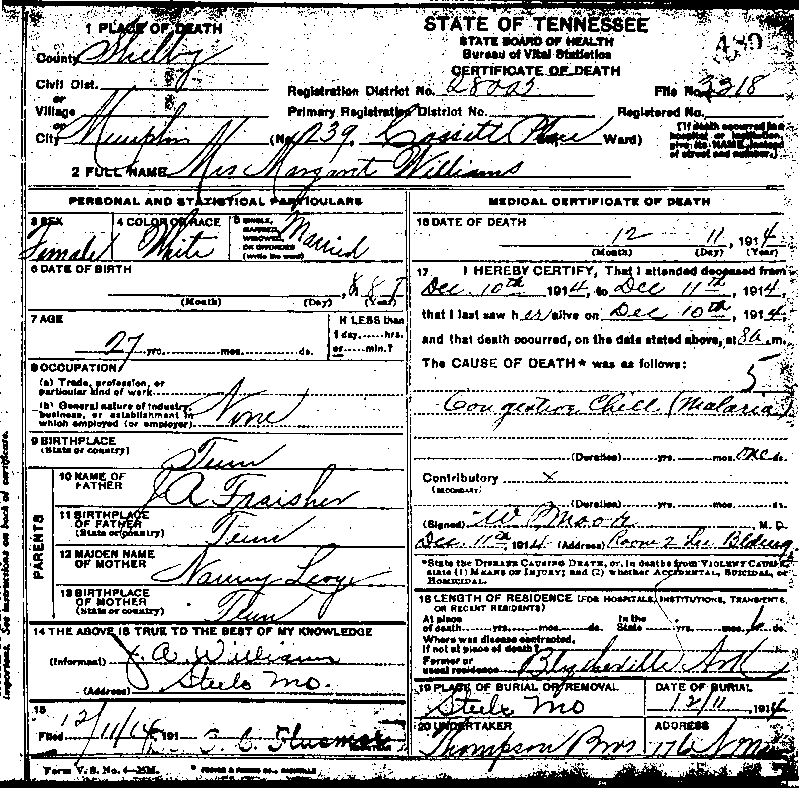 STATE OF TENNESSEE
STATE BOARD OF HEALTH
Bureau of Vital Statistics
CERTIFICATE OF DEATH
1 PLACE OF DEATH
County Shelby
Civil Dist.
or
Village
or
City Memphis (No. 239, Cossitt Place Ward)
Registration District No.
File No. 3318
Primary Registration District No.
Registered No.
(If death occurred in a hospital or institution, give its NAME instead of street and number.)
2 FULL NAME Mrs Margaret Williams
PERSONAL AND STATISTICAL PARTICULARS
3 SEX
Female
4 COLOR OR RACE
White
5 SINGLE, MARRIED, WIDOWED, OR DIVORCED (Write the word)
Married
6 DATE OF BIRTH
(Month) (Day) (Year)
7 AGE
27 yrs. mos. ds.
If LESS than
1 day, hrs.
or min.?
8 OCCUPATION
(a) Trade, profession, or
particular kind of work
(b) General nature of industry,
business, or establishment in
which employed (or employer)
None
9 BIRTHPLACE
(State or country)
Tenn
PARENTS
10 NAME OF
FATHER
J A Fraisher
11 BIRTHPLACE
OF FATHER
(State or country)
Tenn
12 MAIDEN NAME
OF MOTHER
Nanny
13 BIRTHPLACE
OF MOTHER
(State or country)
Tenn
14 THE ABOVE IS TRUE TO THE BEST OF MY KNOWLEDGE
(Informant) J. A. Williams
(Address) Steele Mo.
15
Filed 12/11/14 191
Form V. S. No. 4-25M.
MEDICAL CERTIFICATE OF DEATH
16 DATE OF DEATH
12 11, 1914
(Month) (Day) (Year)
17 I HEREBY CERTIFY, That I attended deceased from
Dec. 10th 1914, to Dec 11th, 1914,
that I last saw her alive on Dec 10th, 1914,
and that death occurred, on the date stated above, at 8a.m.
The CAUSE OF DEATH* was as follows:
5
Congestive Chill (Malaria)
(Duration) yrs. mos. one ds.
Contributory x
(SECONDARY)
(Duration) yrs. mos. ds.
(Signed) W. Moore M. D.
Dec. 11th, 1914 (Address) Room 2
*State the DISEASE CAUSING DEATH, or, in deaths from VIOLENT CAUSES,
state (1) MEANS OF INJURY; and (2) whether ACCIDENTAL, SUICIDAL, or
HOMICIDAL.
18 LENGTH OF RESIDENCE (FOR HOSPITALS, INSTITUTIONS, TRANSIENTS,
OR RECENT RESIDENTS)
At place
of death yrs. mos. ds.
In the
State yrs. mos. ds.
Where was disease contracted,
if not at place of death?
Former or
usual residence Blytheville Ark
19 PLACE OF BURIAL OR REMOVAL
Steele Mo
DATE OF BURIAL
12/11, 1914
20 UNDERTAKER
Thompson Bros
ADDRESS